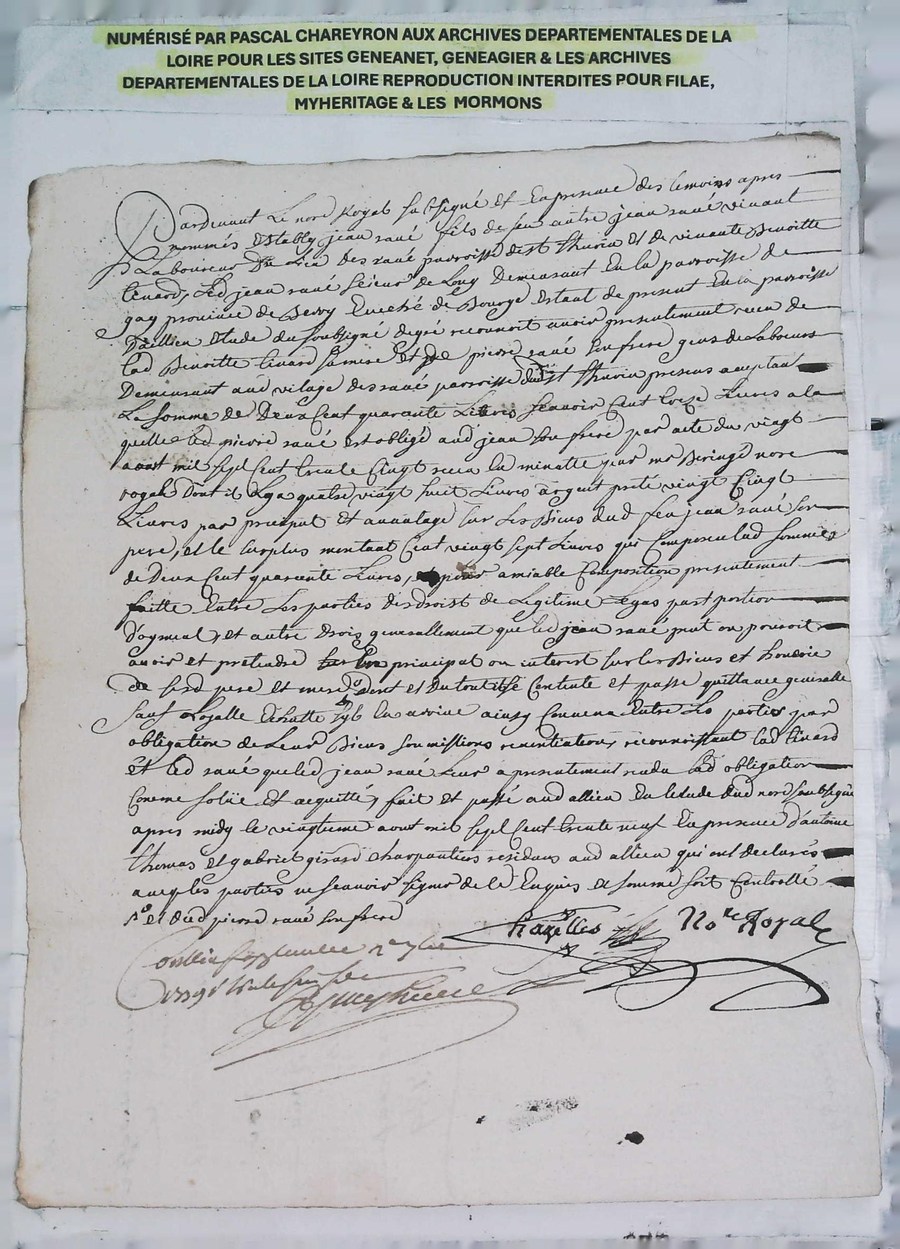 NUMÉRISÉ PAR PASCAL CHAREYRON AUX ARCHIVES DEPARTEMENTALES DE LA
LOIRE POUR LES SITES GENEANET, GENEAGIER & LES ARCHIVES
DEPARTEMENTALES DE LA LOIRE REPRODUCTION INTERDITES POUR FILAE,
MYHERITAGE & LES MORMONS
Pardevant Le nore Royal sousigné et En presence des temoins apres
nommés estably jean raué fils de feu autre jean raué vivant
Laboureur du Lieu des raué parroisse de st thurin et de vivante Benoitte
, Led jean raué sieur de Demeurant En La parroisse de
province de Berry Eveché de Bourge Estant de present En La parroisse
Dallieu Estude du soubsigné de gré reconnoit avoir presentement receu de
Lad Benoitte sa mere Et de pierre raué son frere gens de Labeurs
Demeurant aud vilage des raué parroisse dud st thurin presens aceptan
La somme de Deux Cent quarante Livres scauoir Cent treize Livres a la
quelle led pierre raué est obligé aud jean son frere par acte du vingt
aoust mil sept Cent trente Cinq receu la minutte par mr nore
royal Dont il y a quatre vingt huit Livres argent preté vingt Cinq
Livres par preciput Et avantage sur Les Biens dud feu jean raué son
pere, et le surplus montant Cent vingt sept Livres qui Composent lad somme
de Deux Cent quarante Livres, pour amiable Composition presentement
faitte Entre Les parties des droist de Legitime Legas part portion
d'ogment, et autre drois generallement que led jean raué peut ou pouroit
avoir et pretendre principal ou interest sur les Biens et hoderie
de sesd pere et mere dont et du tout il se Contente et passe quittance generalle
sauf Loyalle Echutte ainsy Convenu Entre Les parties par
obligation de Leurs Biens soumissions renontiations, reconnoissant lad
et led raué que led jean raué Leur a presentement rendu lad obligation
Comme solue et acquittée, fait et passé aud allieu En lestude dud nore soubsigné
apres midy le vingtieme aoust mil sept Cent trente neuf En presence d'antoine
thomas et gabriel girard charpantiers residans aud allieu qui ont declarés
avec les parties ne scauoir signer de ce Enquis et sommé soit Controllé
et dud pierre raué son frere
Chazelles No re Royal